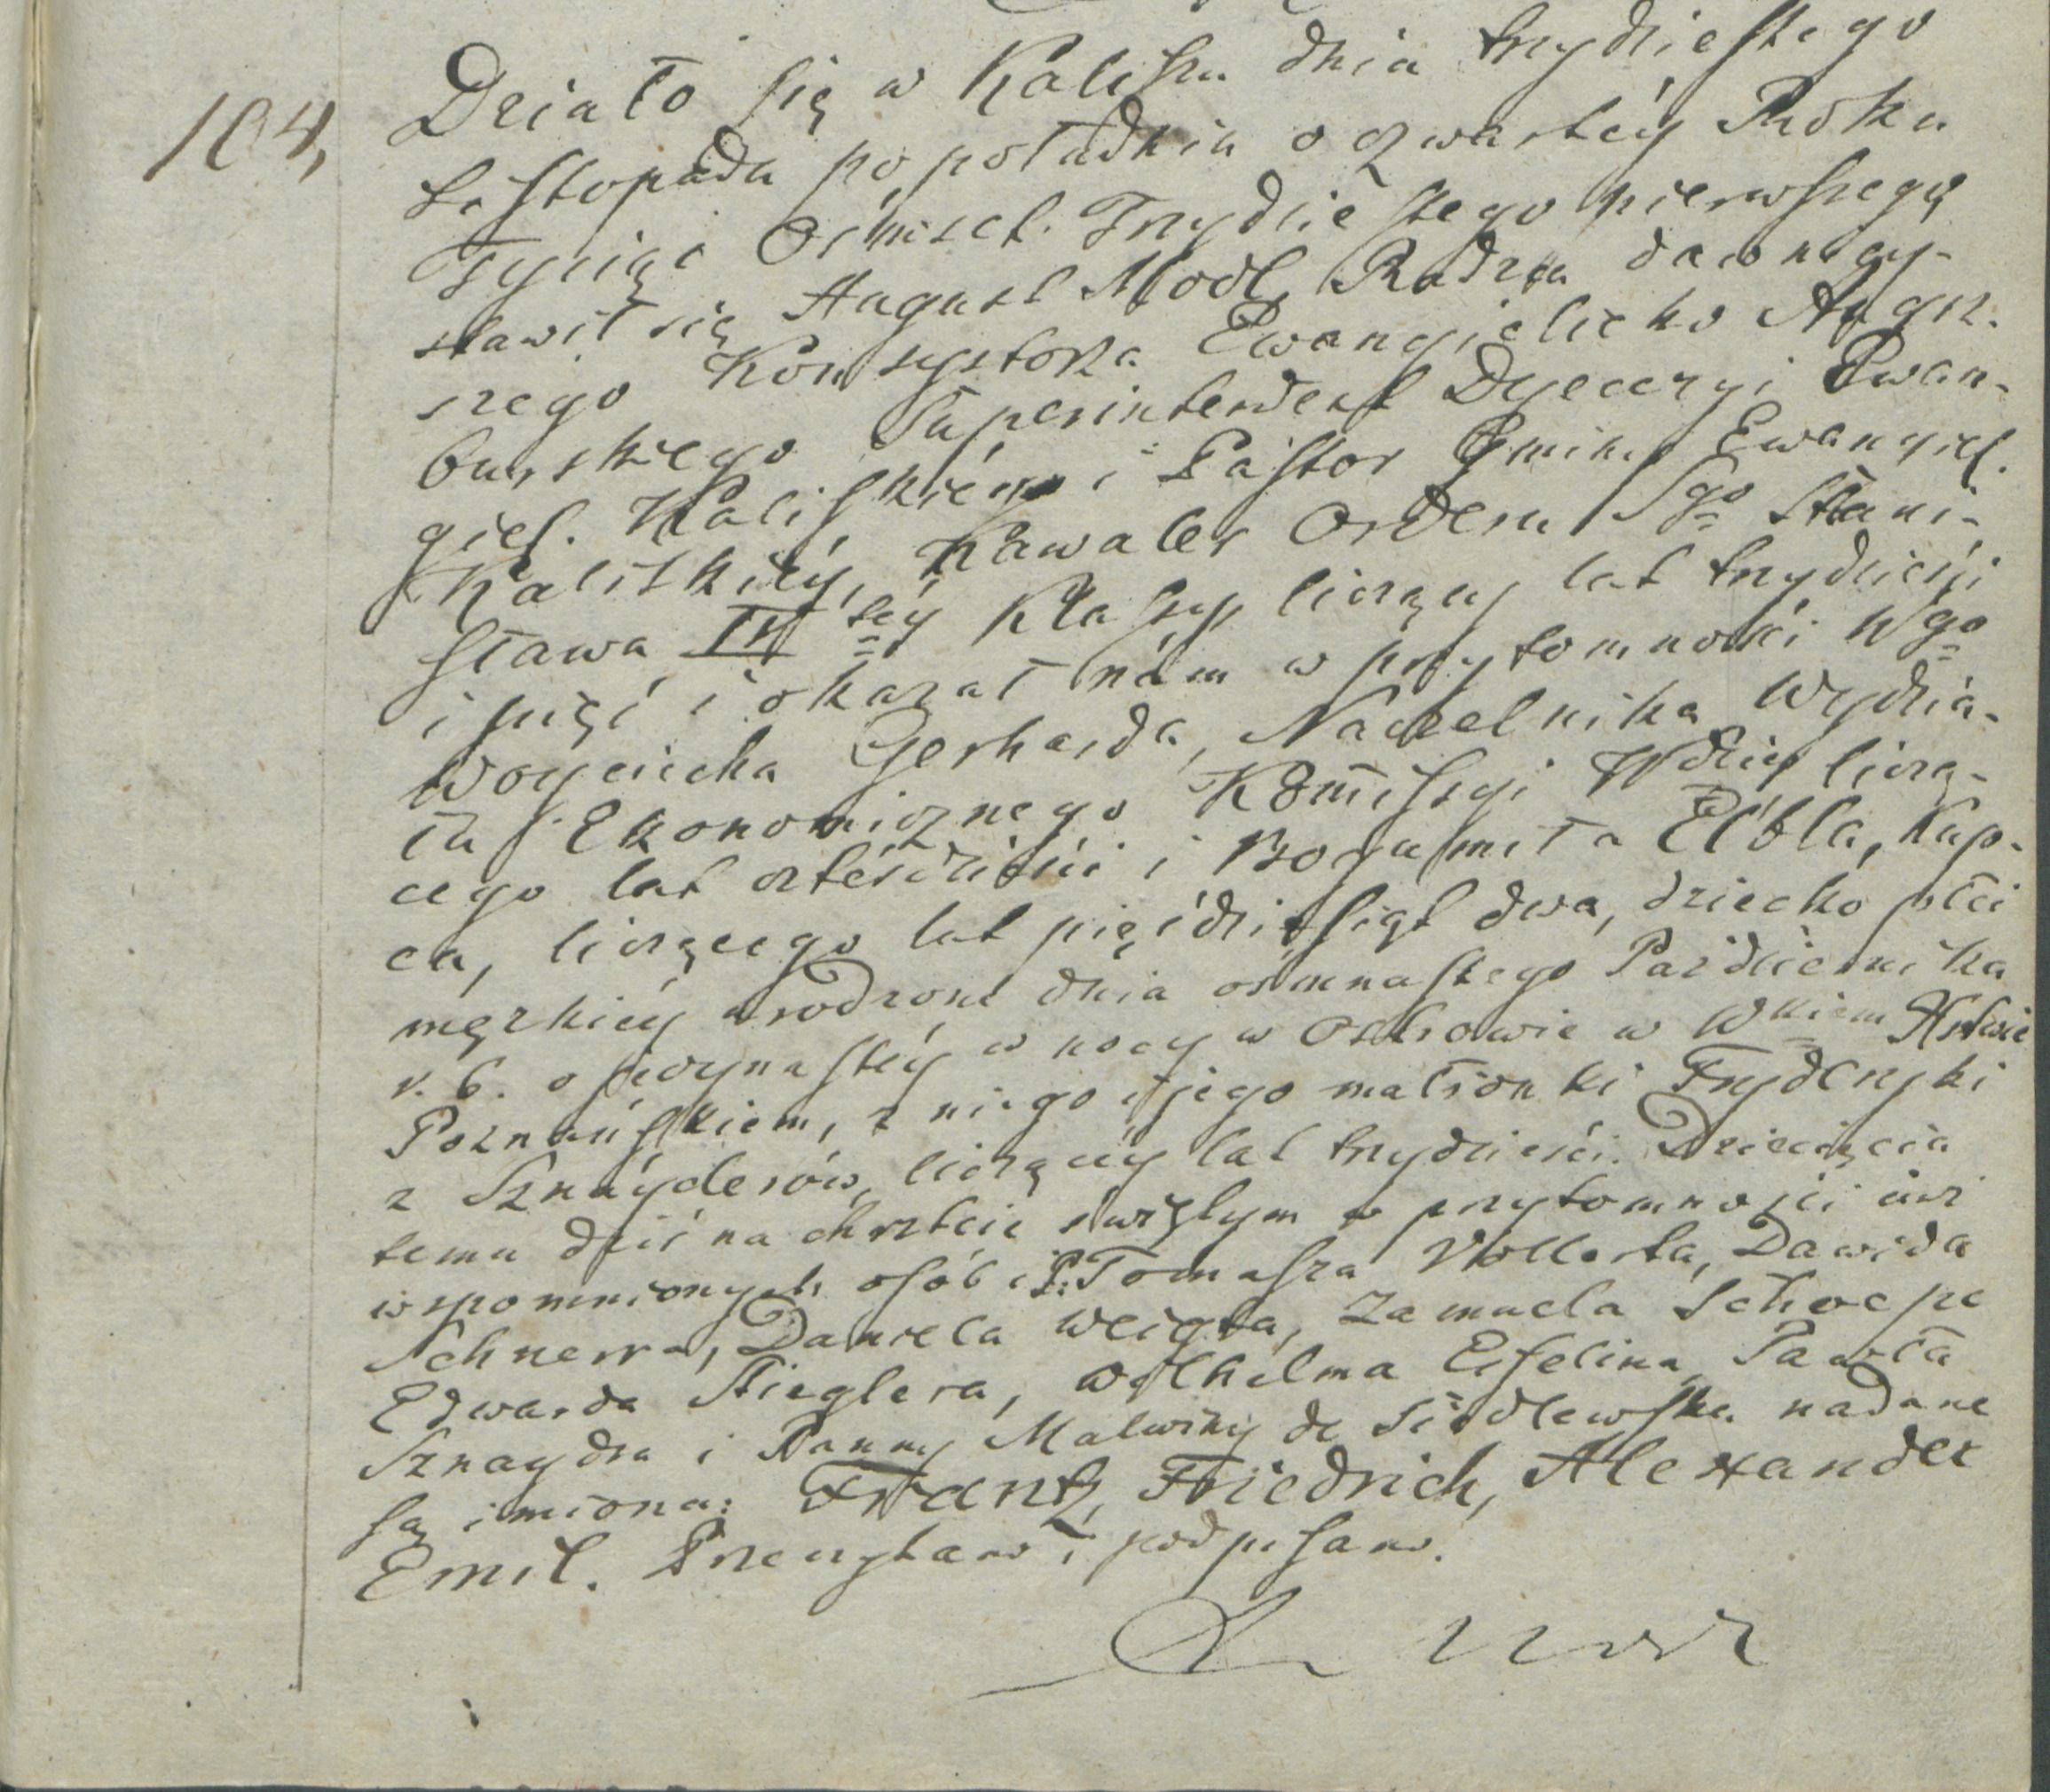 104,
Działo się w Kaliszu dnia trzydziestego
Listopada po południu o czwartéy Roku
Tysiąc Ośmset Trzydziestego pierwszego
stawił się August Modl, Radzca dawniey-
szego Konsystorza Ewangielicko Augsz-
burskiego Superintendent Dyecezyi Ewan-
giel. Kaliskiéy i Pastor Gminy Ewangiel.
Kaliskiéy, Kawaler Orderu Sgo Stani-
sława IV téy Klassy, liczący lat trzydzieści
i pięć i okazał nam w przytomności Wgo
Woyciecha Gerharda, Naczelnika Wydzia-
łu Ekonomicznego Kommissyi Wdzkiey liczą-
cego lat czterdzieści i Bogumiła Elbla, Kup-
ca, liczącego lat pięćdziesiąt dwa, dziecko płci
męzkiéy urodzone dnia osmnastego Październ­ika
r. b. o jedynastéy w nocy w Ostrowie w Wkiem Xstwie
Poznańskiem, z niego i jego małżonki Fryderyki
z Sznayderów, liczącéy lat trzydzieści. Dziecięciu
temu dziś na chrzcie świętym w przytomności już
wspomnionych osób i P. Tomasza Vollerta, Dawida
Schnerra, Daniela Weigta, Zamuela Schoepe
Edwarda Stieglera, Wilhelma Eifelina, Pawła
Sznaydra i Panny Malwiny de Siedlewska nadane
są imiona: Frantz, Friedrich, Alexander
Emil. Przeczytano i podpisano.